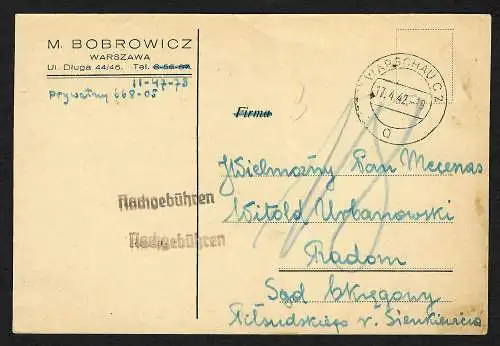 M. BOBROWICZ
WARSZAWA
Ul. Długa 44/46. Tel. 8-56-87.
11-47-78
prywatny 668-05
WARSCHAU C2
17.4.42.-19
o
Firma
Wielmożny Pan Mecenas
Witold Urbanowski
Radom
Sąd Okręgowy
Piłsudskiego r. Sienkiewicza
Nachgebühren
Nachgebühren